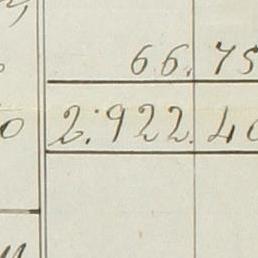 66.75
0 2.922.40